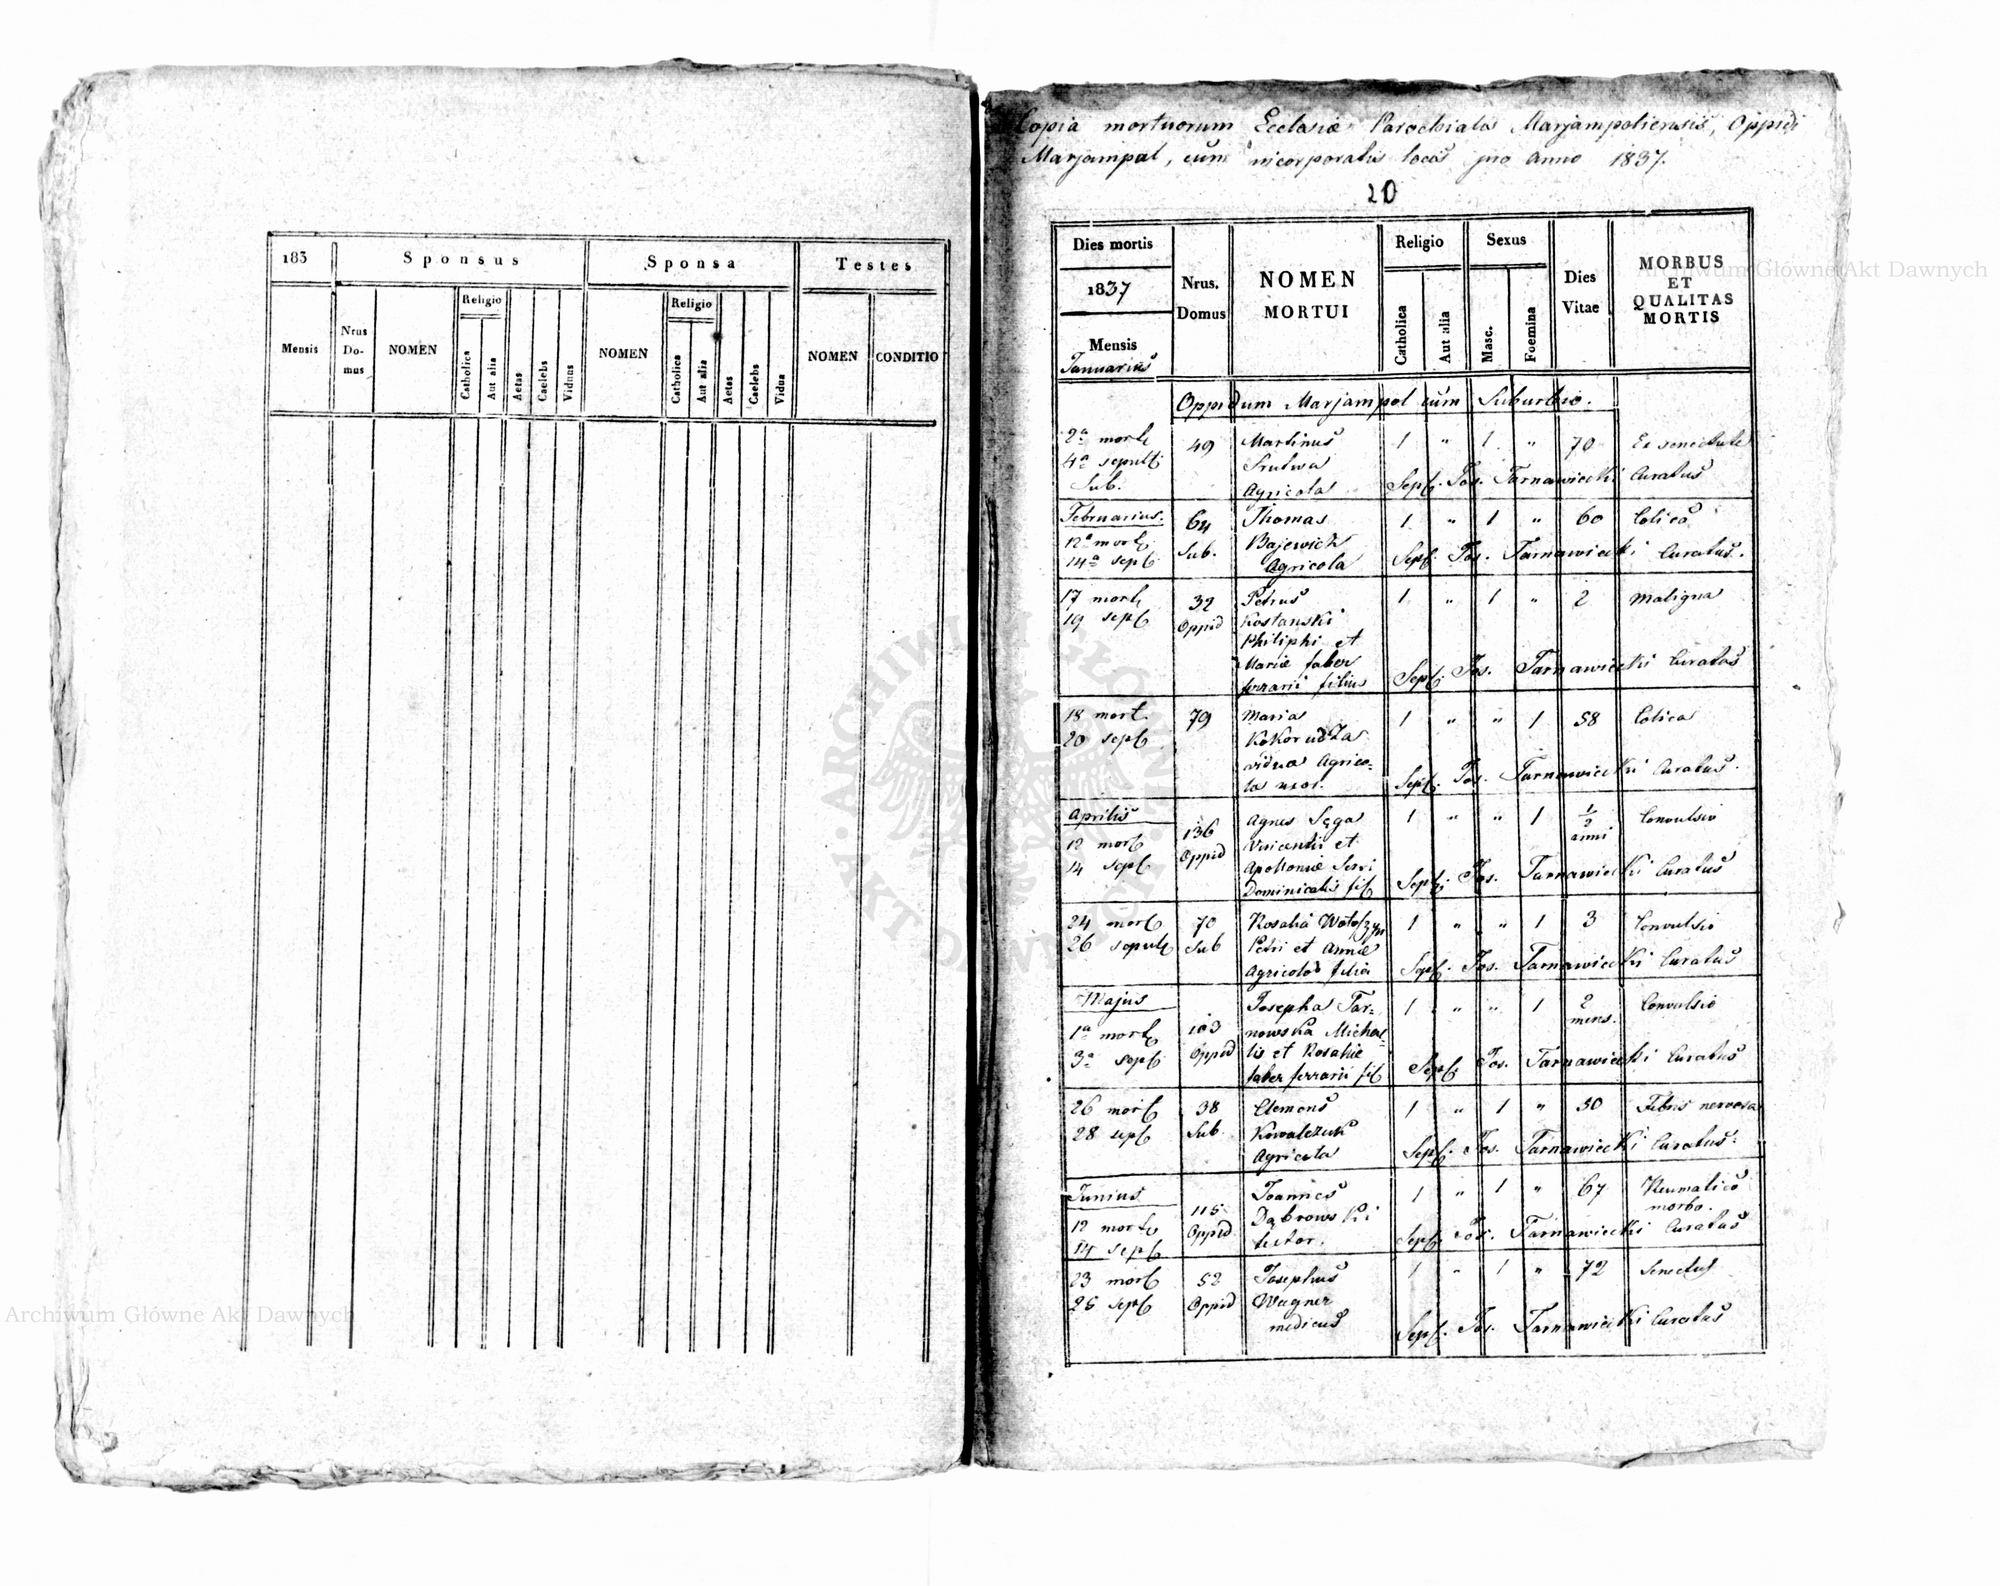 183
Sponsus
Sponsa
Testes
Mensis
Nrus Do- mus
NOMEN
Religio
Catholica
Aut alia
Aetas
Caelebs
Viduus
NOMEN
Religio
Catholica
Aut alia
Aetas
Caelebs
Vidua
NOMEN
CONDITIO
Copia mortuorum Ecclesiæ Parochialis Marjampoliensis, Oppidi
Marjampol, cum incorporatis locis pro anno 1837.
20
Dies mortis
1837
Mensis
Januarius
Nrus. Domus
NOMEN MORTUI
Religio
Catholica
Aut alia
Sexus
Masc.
Foemina
Dies Vitae
MORBUS ET QUALITAS MORTIS
Oppidum Marjampol cum Suburbio.
2a mort. 49 Martinus 1 " 1 " 70 Ex senectute
4a sepult.
Sub. Agricola Sep. Jos. Tarnawiecki Curatus
Februarius. 64 Thomas 1 " 1 " 60 Colica
12a mort. Sub. Bajewicz
14a sep. Agricola Sep. Jos. Tarnawiecki Curatus.
17 mort. 32 Petrus 1 " 1 " 2 Maligna
19 sep. Oppid Kostanski
Philiphi et
Mariæ faber
ferrarii filius Sep. Jos. Tarnawiecki Curatus
18 mort. 79 Maria 1 " " 1 58 Colica
20 sep. Kokorudza
vidua Agrico-
la uxor. Sep. Jos. Tarnawiecki Curatus.
Aprilis 136 Agnes Sęga 1 " " 1 1/2 anni Convulsio
12 mort. Oppid Vincentii et
14 sep. Apolloniæ Servi
Dominicalis fil Sep. Jos. Tarnawiecki Curatus
24 mort. 70 Rosalia Wołoszyn 1 " " 1 3 Convulsio
26 sepult. Sub Petri et Annæ
Agricola filia Sep. Jos. Tarnawiecki Curatus
Majus Josepha Tar- 1 " " 1 2 mens. Convulsio
1a mort. 103 nowska Micha-
3a sep. Oppid lis et Rosaliæ
faber ferrarii fil Sep. Jos. Tarnawiecki Curatus
26 mort. 38 Clemens 1 " 1 " 50 Febris nervosa
28 sep. Sub Kowalczuk
Agricola Sep. Jos. Tarnawiecki Curatus.
Junius 115 Joannes 1 " 1 " 67 Reumatico morbo.
12 mort. Oppid Dąbrowski
14 sep. Sep. Jos. Tarnawiecki Curatus
23 mort. 52 Josephus 1 " 1 " 72 Senectus
25 sep. Oppid Wagner
medicus Sep. Jos. Tarnawiecki Curatus
Archiwum Główne Akt Dawnych
Archiwum Główne Akt Dawnych
ARCHIWUM GŁÓWNE AKT DAWNYCH